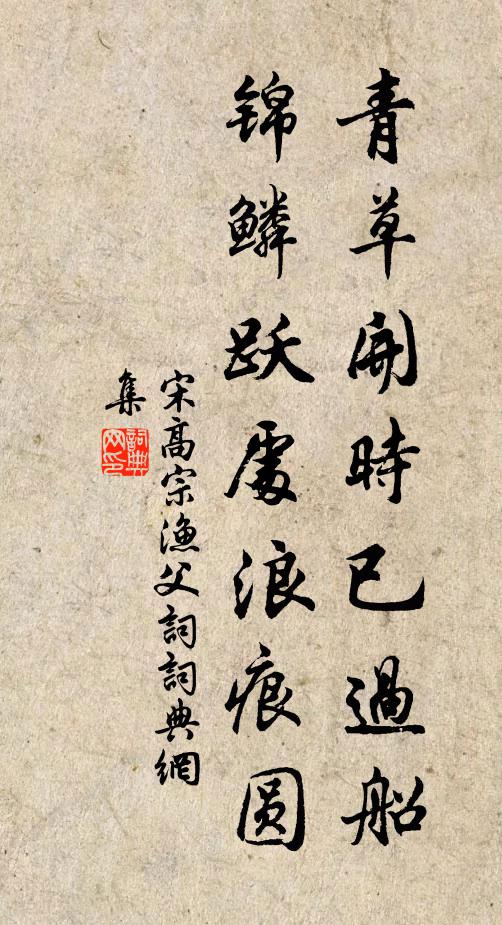 青草开時已過船
锦鳞跃處浪痕圆
宋高宗渔父詞詞典網
集
詞典
网印